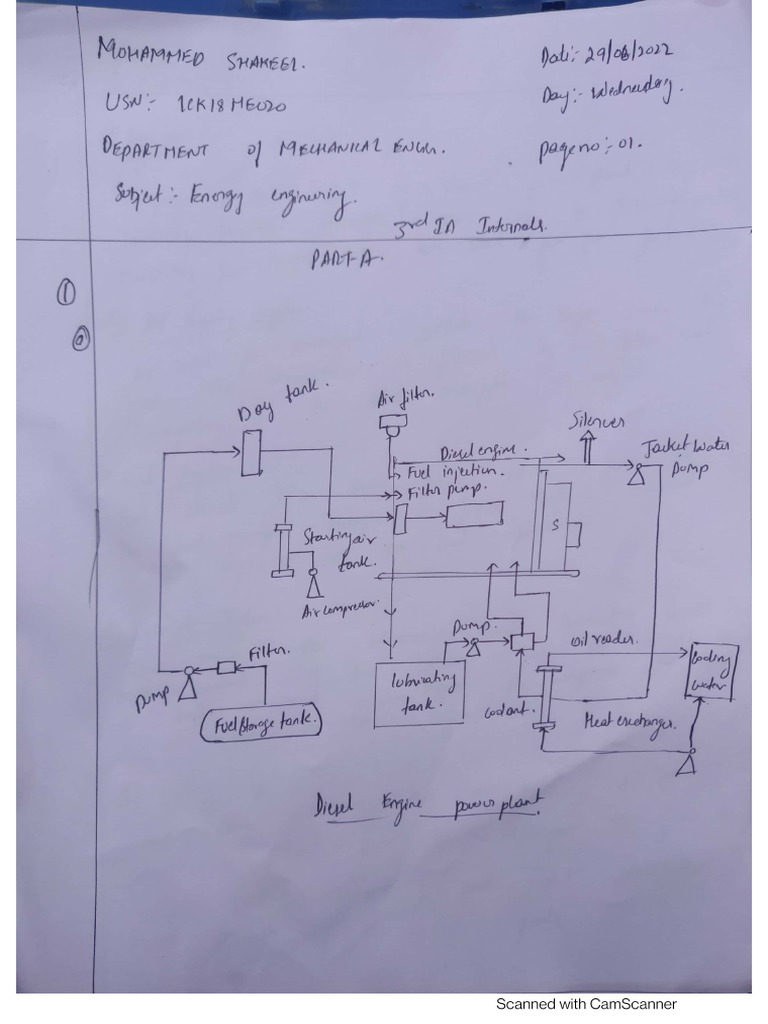 MOHAMMED SHAKEEL.
Date:- 29/06/2022
USN:- 1CK18ME020
Day:- Wednesday.
DEPARTMENT of MECHANICAL ENGG.
page no:- 01.
Subject:- Energy enginuring.
3rd IA Internals.
PART-A.
1
a
Day tank.
Air filter.
Silencer
Diesel engine.
Jacket water
pump
Fuel injection.
Filter pump.
S
Starting air
tank.
Air compressor.
Pump.
Filter.
oil reader.
Cooling
water
lubricating
tank.
Pump
Fuel storage tank.
coolant.
Heat exchanger.
Diesel Engine power plant.
Scanned with CamScanner